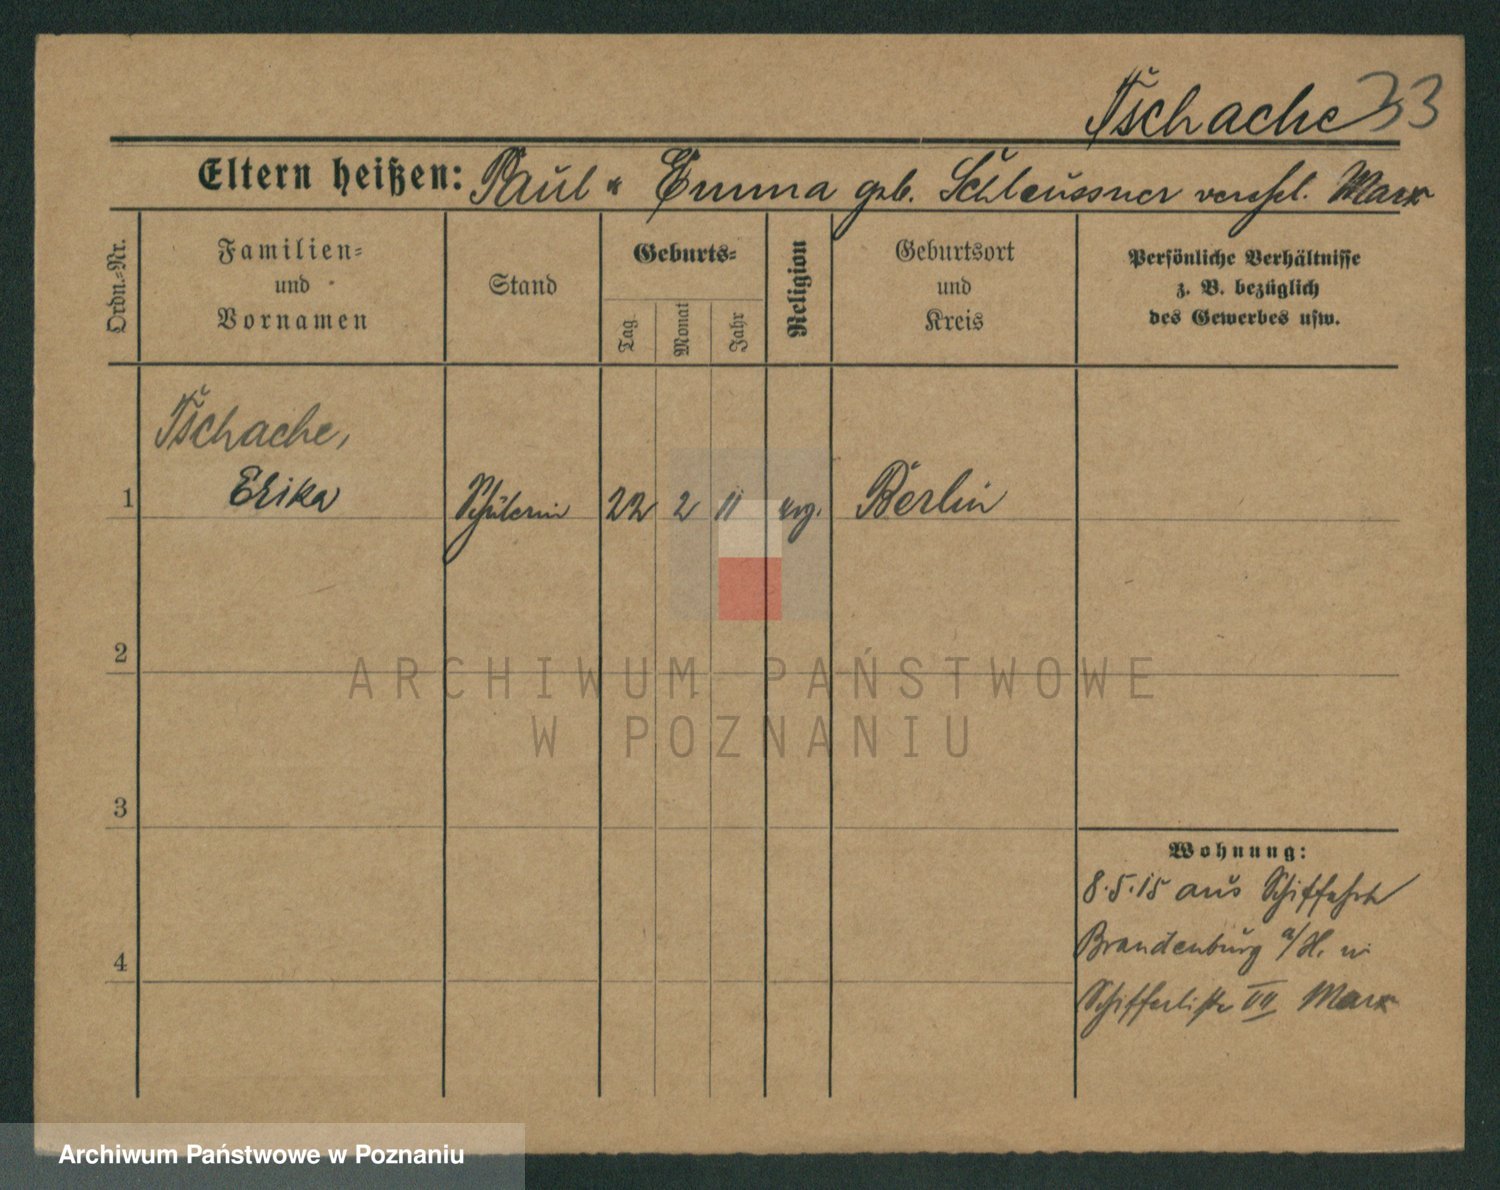 Tschache 33
Eltern heißen: Paul u Emma geb. Schleussner verehel. Marx
Ordn.-Nr.
Familien- und Vornamen
Stand
Geburts-
Tag
Monat
Jahr
Religion
Geburtsort und Kreis
Persönliche Verhältnisse
z. B. bezüglich
des Gewerbes usw.
Tschache,
1 Erika Schülerin 22 2 11 evg. Berlin
2
3
4
Wohnung:
8.5.15 aus Schiffahrt
Brandenburg a/H. in
Schifferliste VII Marx
ARCHIWUM PAŃSTWOWE
W POZNANIU
Archiwum Państwowe w Poznaniu